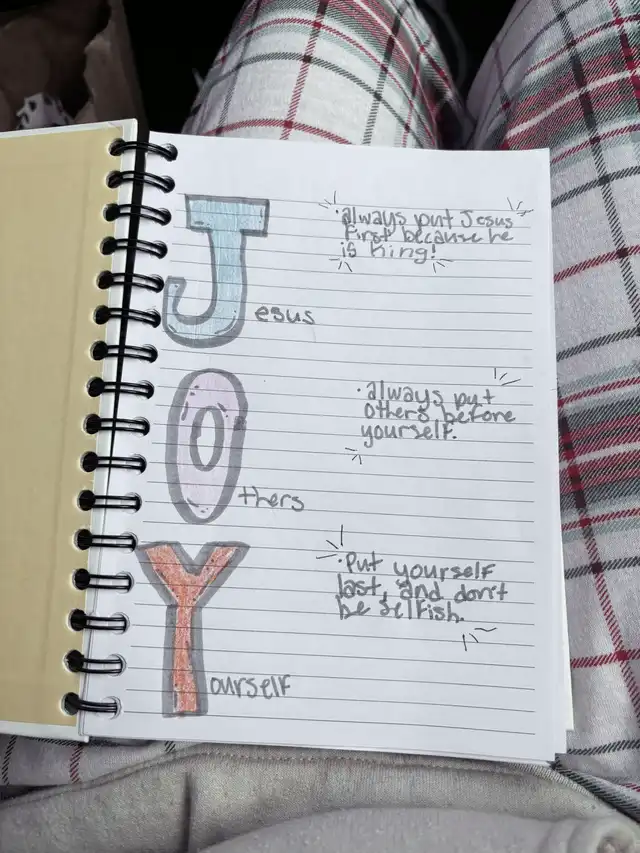 Jesus
• always put Jesus
first because he
is king!
Others
• always put
others before
yourself.
Yourself
• Put yourself
last, and don't
be selfish.